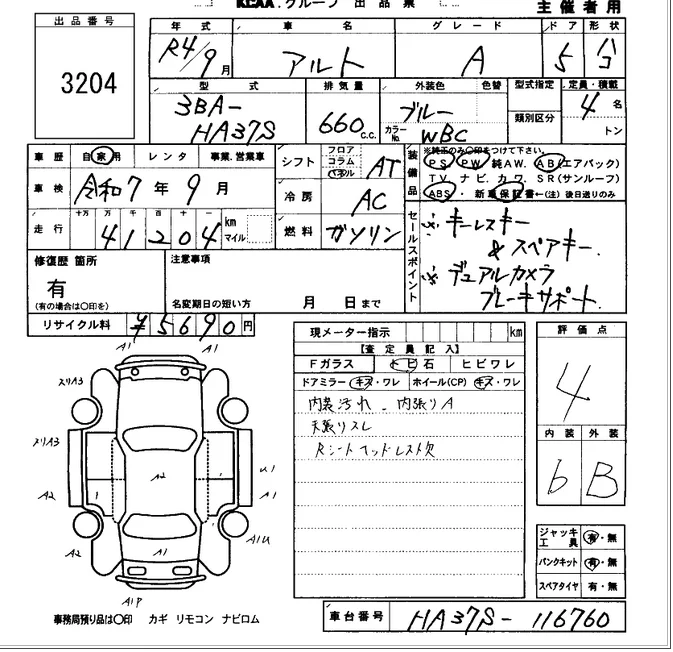 KCAA.グループ 出品票
主催者用
出品番号
3204
年式 車名 グレード ドア 形状
R4/9月 アルト A 5 ハコ
型式 排気量 外装色 色替 型式指定 定員・積載
3BA-
HA37S
660 c.c.
ブルー
カラーNo. WBC
類別区分
4名
トン
車歴 自家用 レンタ 事業.営業車
車検 令和7年9月
走行 十万 万 千 百 十 一
41204 km マイル
シフト フロア コラム パネル AT
冷房 AC
燃料 ガソリン
装備品
※純正のみ○印をつけて下さい。
PS PW 純AW. AB(エアバック)
TV ナビ. カワ. SR(サンルーフ)
ABS ・ 新車保証書←(注)後日送りのみ
セールスポイント
※キーレスキー
&スペアキー.
※デュアルカメラ
ブレーキサポート.
修復歴 箇所
有
(有の場合は○印を)
注意事項
名変期日の短い方 月 日まで
リサイクル料 ¥5690円
現メーター指示 km
【査定員記入】
Fガラス トビ石 ヒビワレ
ドアミラー キズ・ワレ ホイール(CP) キズ・ワレ
内装汚れ. 内張りA
天張りスレ
Rシートヘッドレスト欠
評価点
4
内装 外装
b B
ジャッキ工具 有・無
パンクキット 有・無
スペアタイヤ 有・無
A1 A1
スリA3
スリA3
A2 A2 U1
A1
A2 A1 A1U
A1P
事務局預り品は○印 カギ リモコン ナビロム
車台番号 HA37S-116760